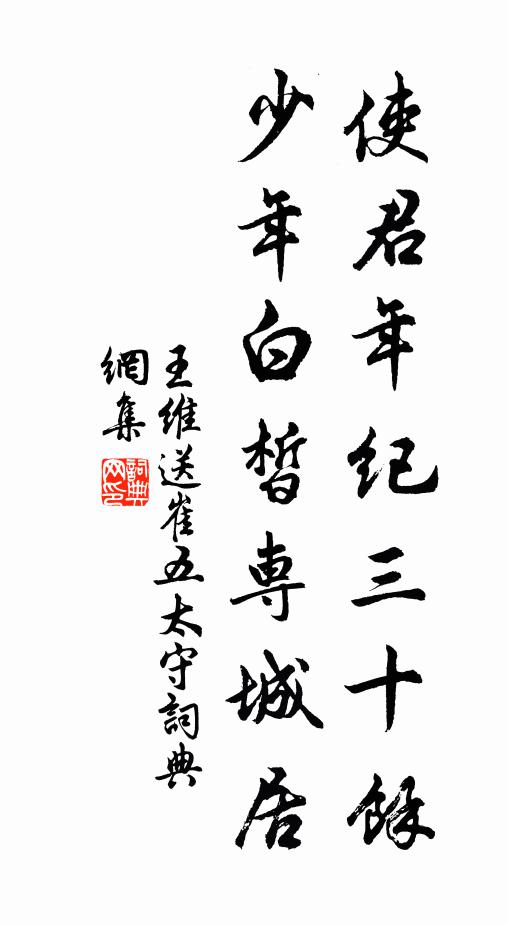 使君年紀三十餘
少年白皙專城居
王維送崔五太守詞典
網集
詞典
网印